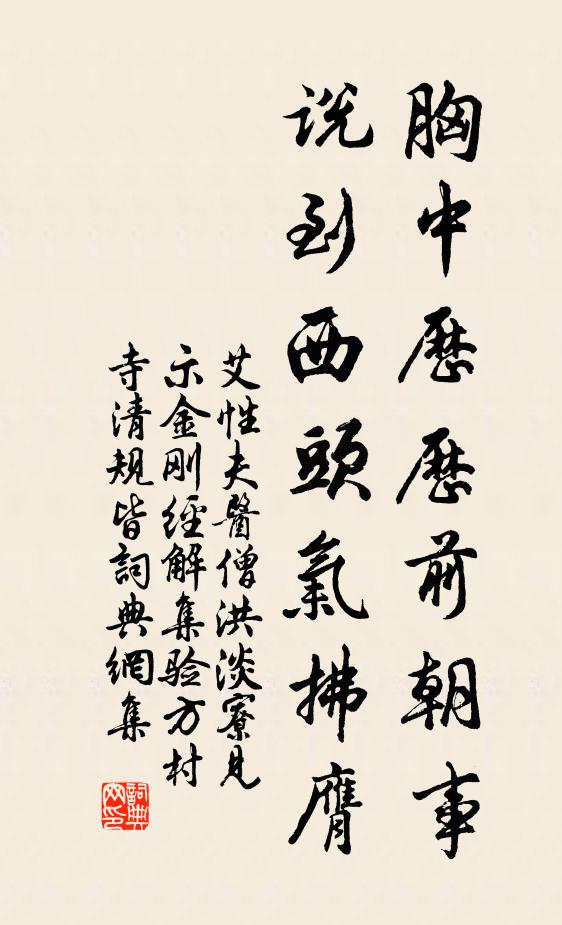 胸中歷歷前朝事
说到西頭氣拂膺
艾性夫醫僧洪淡寮見
示金刚經解集验方村
寺清規皆詞典網集
詞典网印